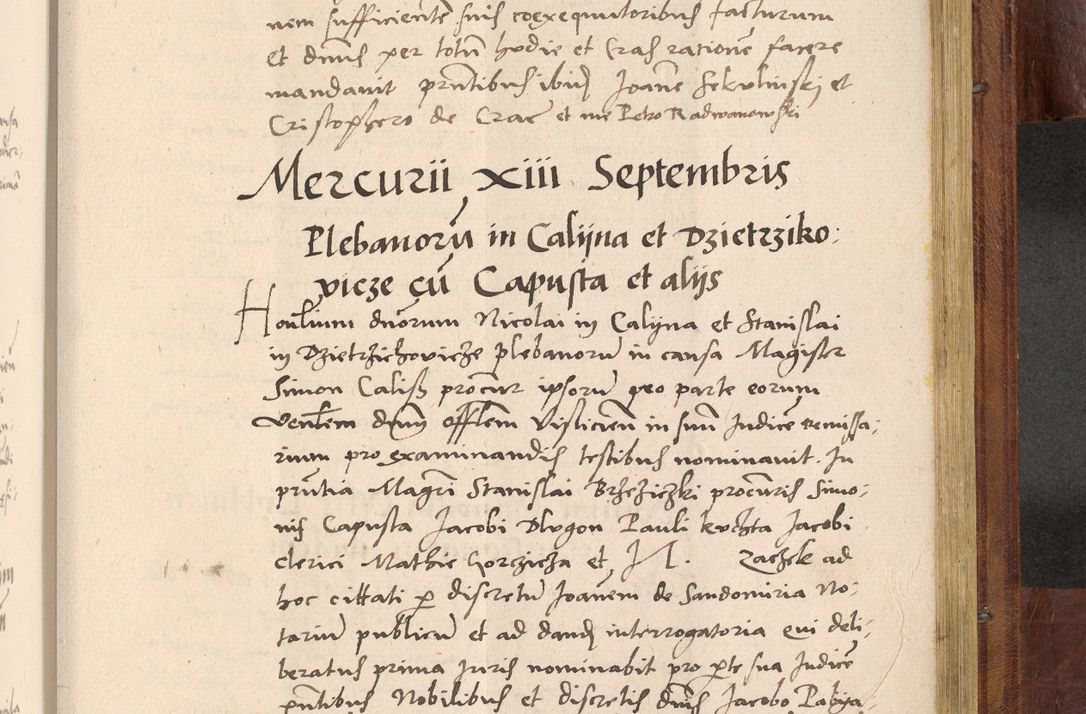 nem sufficiente suis coexequutoribus facturum
et dnus per totu hodie et Cras ratione facere
mandavit prntibus ibid Joane Sekulinski et
Cristophero de Crac et me Petro Radwanowski
Mercurii xiii Septembris
Plebanoru in Calijna et Dzietrziko:
vicze cu Capusta et alijs
Honlium duorum Nicolai in Calijna et Stanislai
in Dzietrzichovicze plebanoru in causa Magister
Simon Calisz procur ipsoru pro parte eorum
venlem dnm offlem Vislicien in suu Judice remissa:
rium pro examinandis testibus nominavit. In
prntia Magri Stanislai Brzeziczki procuris Simo:
nis Capusta Jacobi Dlugon Pauli kuchta Jacobi
clerici Mathie Gorczicza et N. Zaczek ad
hoc cittati p discretu Joanem de Sandomiria No:
tariu publicu et ad dand interrogatoria qui deli:
beratus prima Juris nominabit pro pte sua Judice
pntibus Nobilibus et discretis dnis Jacobo